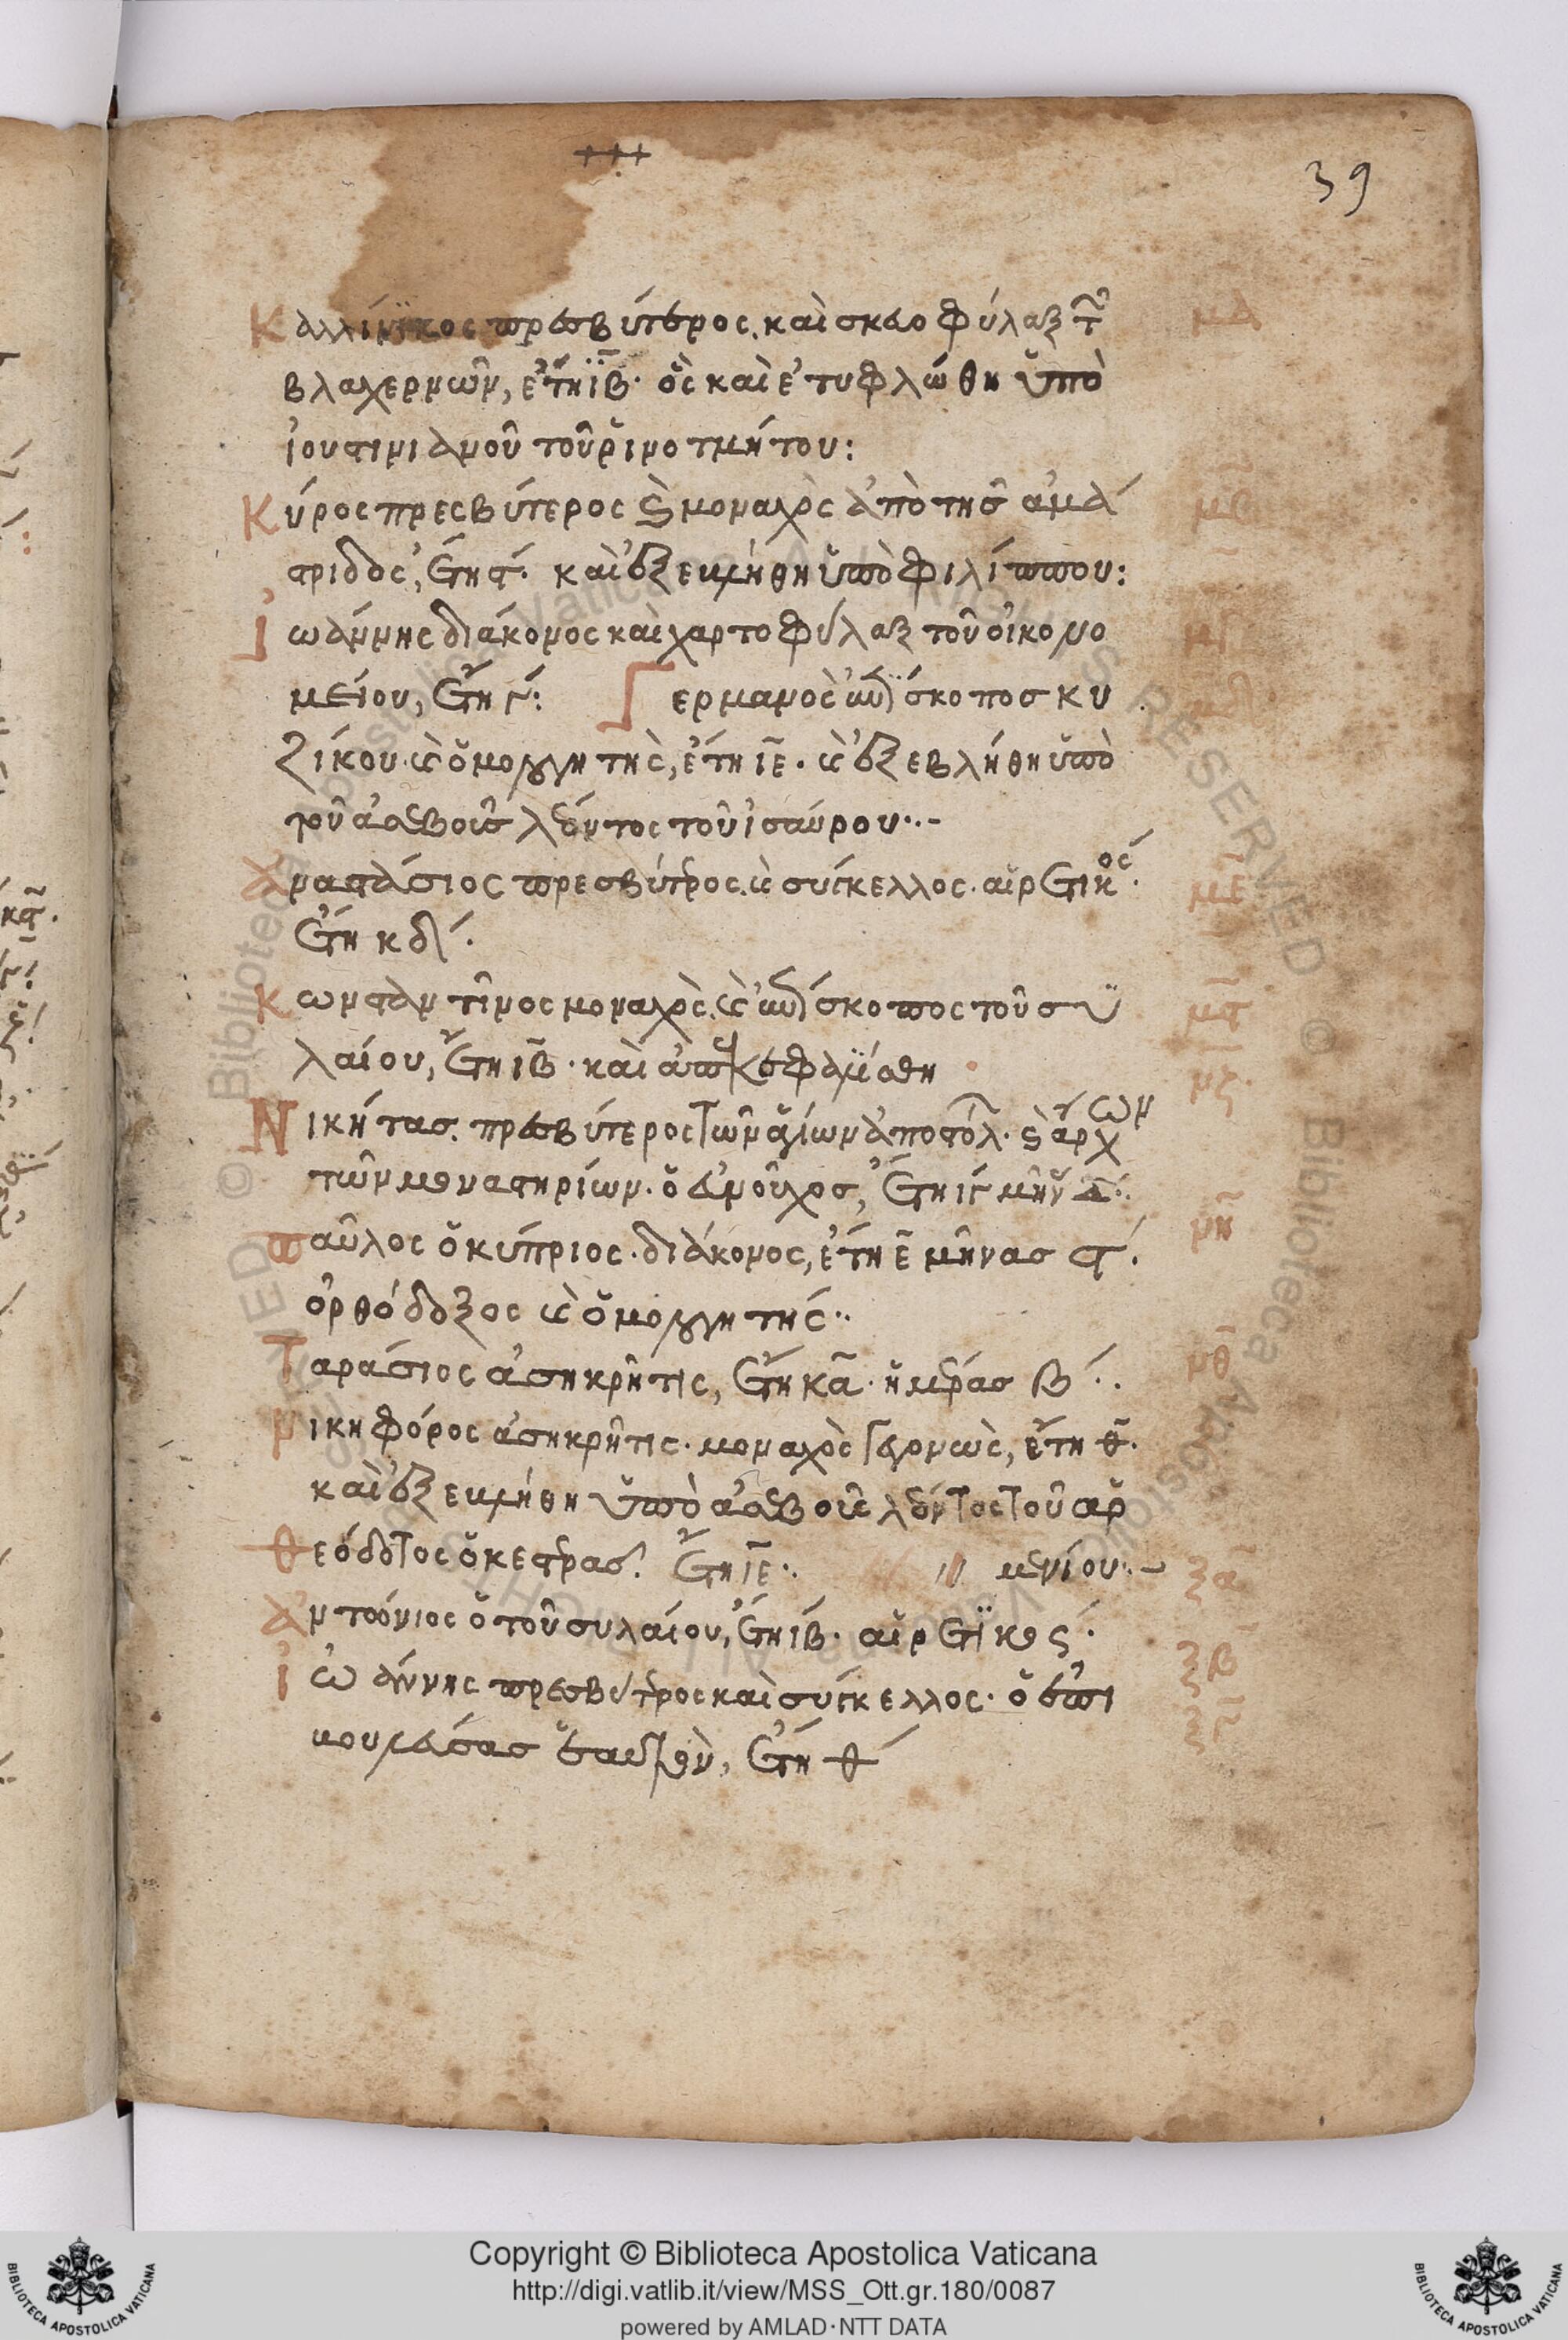 39
Καλλίνικος πρεσβύτερος. καὶ σκευοφύλαξ τῶν μα
βλαχερνῶν, ἔτη ιβ· ὃς καὶ ἐτυφλώθη ὑπὸ
ἰουστινιανοῦ τοῦ ῥινοτμήτου:
Κύρος πρεσβύτερος κ μοναχὸς ἀπὸ τῆς ἀμά μβ
στριδος, ἔτη ϛ· καὶ ἐξεκινήθη ὑπὸ φιλίππου:
Ἰωάννης διάκονος καὶ χαρτοφύλαξ τοῦ οἰκονο μγ
μείου, ἔτη γ: Γερμανὸς ἐπίσκοπος κυ μδ
ζίκου. κ ὁμολογητής, ἔτη ιε· κ ἐξεβλήθη ὑπὸ
τοῦ ἀσεβοῦς λέοντος τοῦ ἰσαύρου··-
Ἀναστάσιος πρεσβύτερος. κ σύγκελλος· αἱρετικός· με
ἔτη κδ·
Κωνσταντῖνος μοναχὸς. κ ἐπίσκοπος τοῦ συ μϛ
λαίου, ἔτη ιβ· καὶ ἀπεκεφαλίσθη
Νικήτας. πρεσβύτερος τῶν ἁγίων ἀποστόλ· κ ἄρχων μζ
τῶν μοναστηρίων· ὁ εὐνοῦχος, ἔτη ιγ μῆν
Παῦλος ὁ κύπριος· διάκονος, ἔτη ε μῆνας ϛ· μη
ὀρθόδοξος κ ὁμολογητής··
Ταράσιος ἀσηκρῆτις, ἔτη κα· ἡμέρας β·· μθ
Νικηφόρος ἀσηκρῆτις· μοναχὸς γεγονὼς, ἔτη θ·
καὶ ἐξεκινήθη ὑπὸ ἀσεβοῦς λέοντος τοῦ ἀρ
Θεόδοτος ὁ κεστρας· ἔτη ιε·· // μενίου··- ξα
Ἀντώνιος ὁ τοῦ συλαίου, ἔτη ιβ· αἱρετικος· ξβ
Ἰωάννης πρεσβύτερος καὶ σύγκελλος· ὁ ἐπι ξγ
ἔτη θ
Copyright © Biblioteca Apostolica Vaticana
http://digi.vatlib.it/view/MSS_Ott.gr.180/0087
powered by AMLAD·NTT DATA
BIBLIOTECA APOSTOLICA VATICANA
BIBLIOTECA APOSTOLICA VATICANA